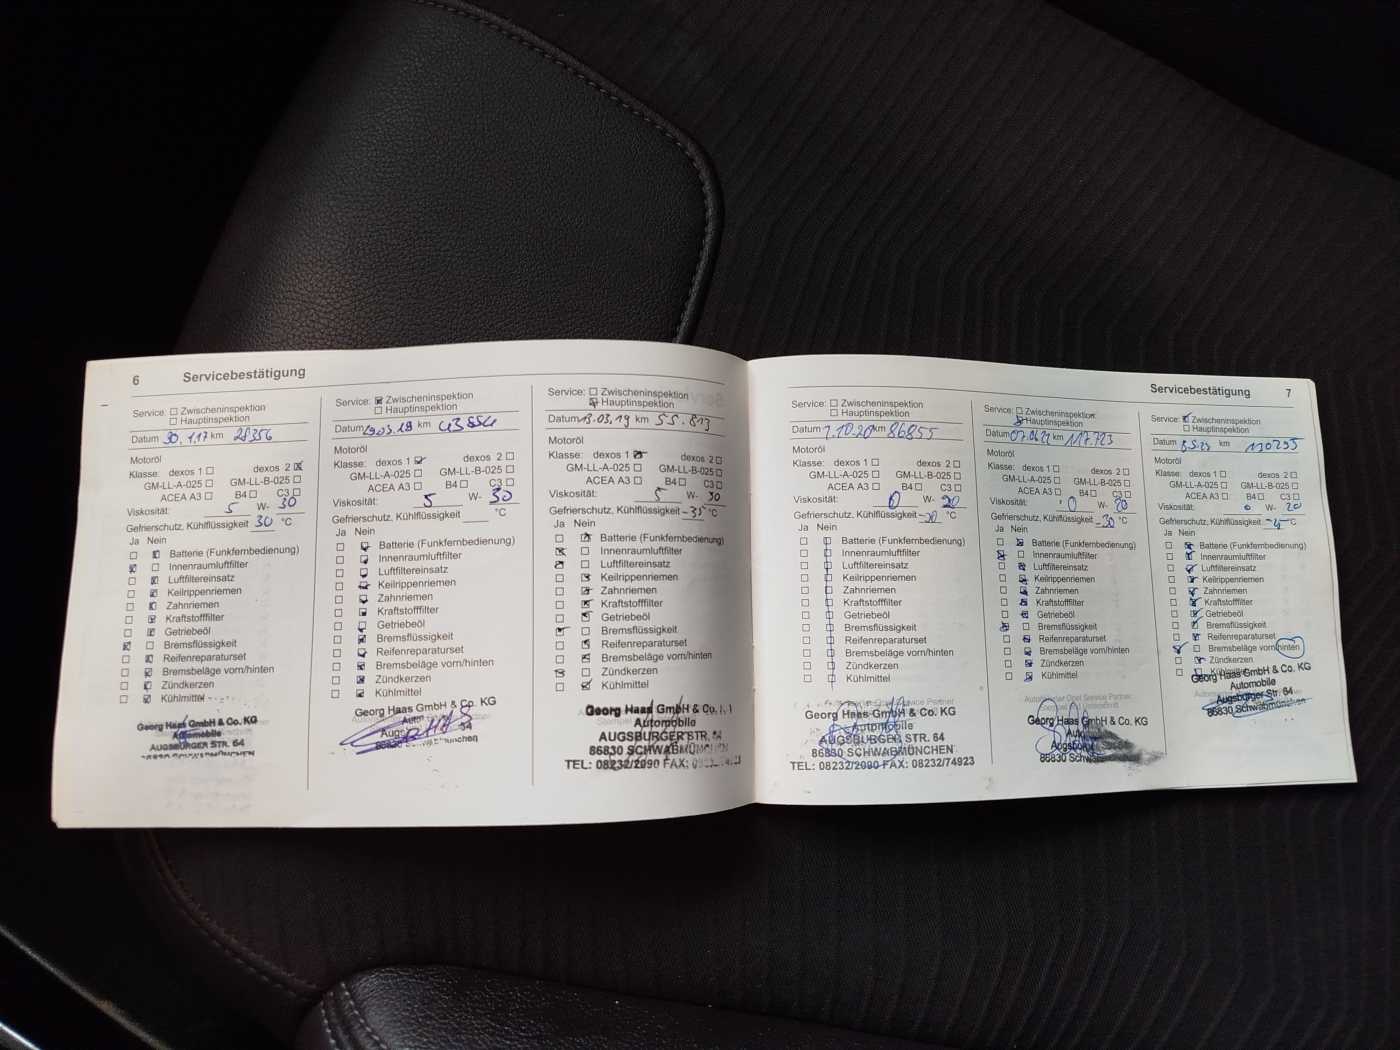 6 Servicebestätigung
Service: Zwischeninspektion
Hauptinspektion
Datum 30.1.17 km 28356
Motoröl
Klasse: dexos 1 dexos 2
GM-LL-A-025 GM-LL-B-025
ACEA A3 B4 C3
Viskosität: 5 W- 30
Gefrierschutz, Kühlflüssigkeit 30 °C
Ja Nein
Batterie (Funkfernbedienung)
Innenraumluftfilter
Luftfiltereinsatz
Keilrippenriemen
Zahnriemen
Kraftstofffilter
Getriebeöl
Bremsflüssigkeit
Reifenreparaturset
Bremsbeläge vorn/hinten
Zündkerzen
Kühlmittel
Georg Haas GmbH & Co. KG
Automobile
AUGSBURGER STR. 64
Service: Zwischeninspektion
Hauptinspektion
Datum km
Motoröl
Klasse: dexos 1 dexos 2
GM-LL-A-025 GM-LL-B-025
ACEA A3 B4 C3
Viskosität: 5 W- 30
Gefrierschutz, Kühlflüssigkeit °C
Ja Nein
Batterie (Funkfernbedienung)
Innenraumluftfilter
Luftfiltereinsatz
Keilrippenriemen
Zahnriemen
Kraftstofffilter
Getriebeöl
Bremsflüssigkeit
Reifenreparaturset
Bremsbeläge vorn/hinten
Zündkerzen
Kühlmittel
Georg Haas GmbH & Co. KG
Service: Zwischeninspektion
Hauptinspektion
Datum 13.03.19 km 55.813
Motoröl
Klasse: dexos 1 dexos 2
GM-LL-A-025 GM-LL-B-025
ACEA A3 B4 C3
Viskosität: 5 W- 30
Gefrierschutz, Kühlflüssigkeit -35 °C
Ja Nein
Batterie (Funkfernbedienung)
Innenraumluftfilter
Luftfiltereinsatz
Keilrippenriemen
Zahnriemen
Kraftstofffilter
Getriebeöl
Bremsflüssigkeit
Reifenreparaturset
Bremsbeläge vorn/hinten
Zündkerzen
Kühlmittel
Georg Haas GmbH & Co.
Automobile
AUGSBURGER STR. 64
86830 SCHWABMÜNCHEN
TEL: 08232/2090 FAX:
Servicebestätigung 7
Service: Zwischeninspektion
Hauptinspektion
Datum 1.10.20 km 86855
Motoröl
Klasse: dexos 1 dexos 2
GM-LL-A-025 GM-LL-B-025
ACEA A3 B4 C3
Viskosität: 0 W- 20
Gefrierschutz, Kühlflüssigkeit °C
Ja Nein
Batterie (Funkfernbedienung)
Innenraumluftfilter
Luftfiltereinsatz
Keilrippenriemen
Zahnriemen
Kraftstofffilter
Getriebeöl
Bremsflüssigkeit
Reifenreparaturset
Bremsbeläge vorn/hinten
Zündkerzen
Kühlmittel
Georg Haas GmbH & Co. KG
Automobile
AUGSBURGER STR. 64
86830 SCHWABMÜNCHEN
TEL: 08232/2090 FAX: 08232/74923
Service: Zwischeninspektion
Hauptinspektion
Datum 07.06.22 km 117.723
Motoröl
Klasse: dexos 1 dexos 2
GM-LL-A-025 GM-LL-B-025
ACEA A3 B4 C3
Viskosität: 0 W- 20
Gefrierschutz, Kühlflüssigkeit -30 °C
Ja Nein
Batterie (Funkfernbedienung)
Innenraumluftfilter
Luftfiltereinsatz
Keilrippenriemen
Zahnriemen
Kraftstofffilter
Getriebeöl
Bremsflüssigkeit
Reifenreparaturset
Bremsbeläge vorn/hinten
Zündkerzen
Kühlmittel
Georg Haas GmbH & Co. KG
86830
Service: Zwischeninspektion
Hauptinspektion
Datum km 130295
Motoröl
Klasse: dexos 1 dexos 2
GM-LL-A-025 GM-LL-B-025
ACEA A3 B4 C3
Viskosität: 0 W- 20
Gefrierschutz, Kühlflüssigkeit °C
Ja Nein
Batterie (Funkfernbedienung)
Innenraumluftfilter
Luftfiltereinsatz
Keilrippenriemen
Zahnriemen
Kraftstofffilter
Getriebeöl
Bremsflüssigkeit
Reifenreparaturset
Bremsbeläge vorn/hinten
Zündkerzen
Kühlmittel
Georg Haas GmbH & Co. KG
Automobile
Augsburger Str. 64
86830 Schwabmünchen